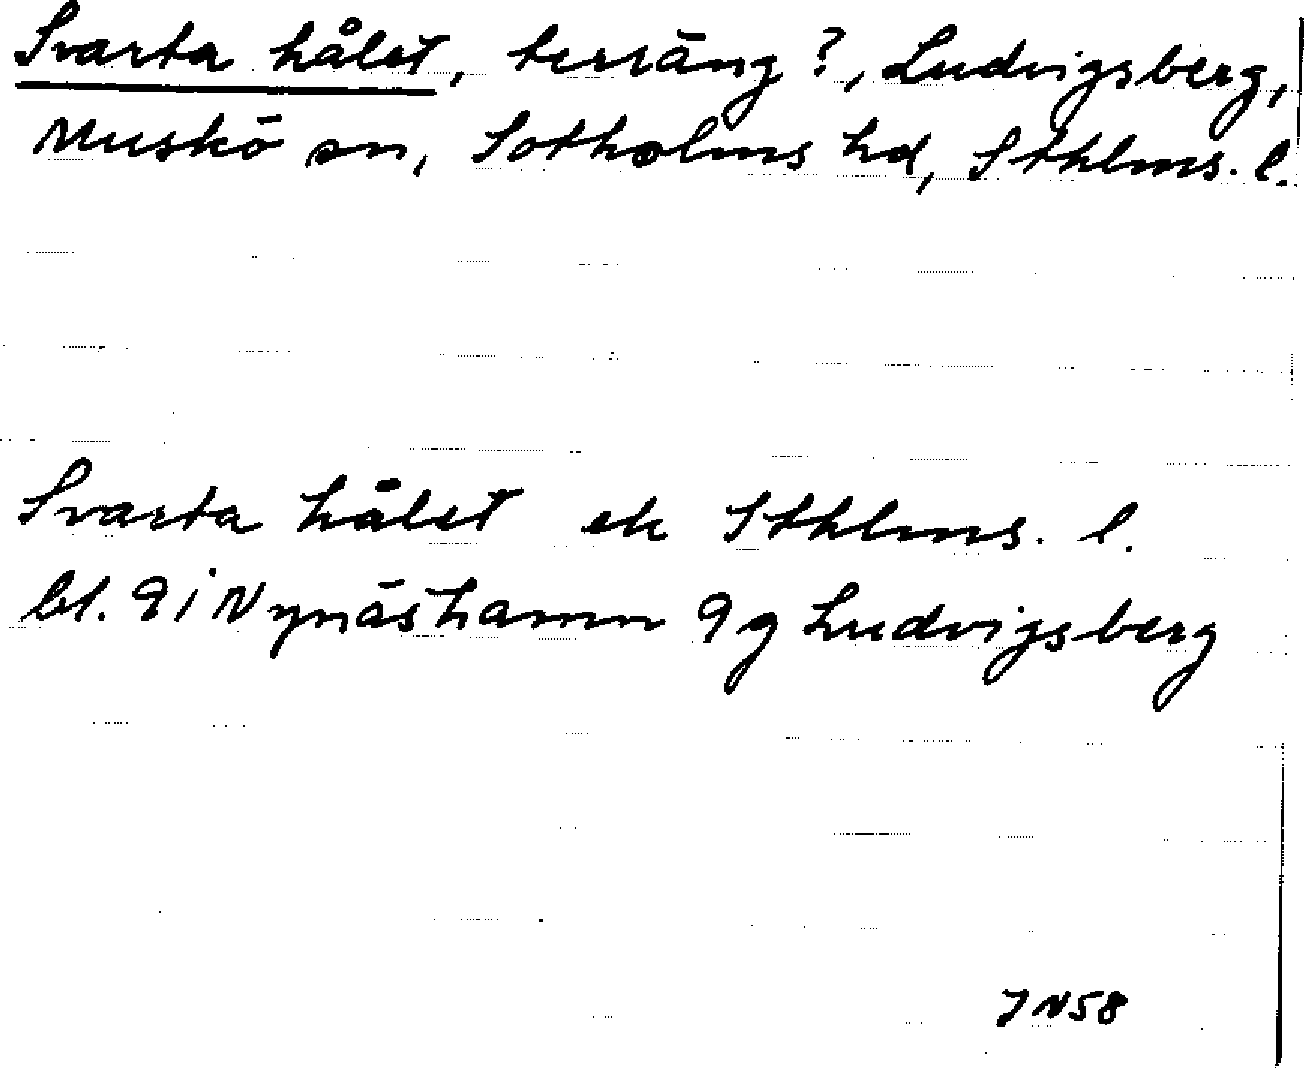 Svarta hålet, terräng?, Ludvigsberg,
Muskö sn, Sotholms hd, Sthlms. l.
Svarta hålet ek Sthlms. l.
bl. 9 i Nynäshamn 9 g Ludvigsberg
JN58